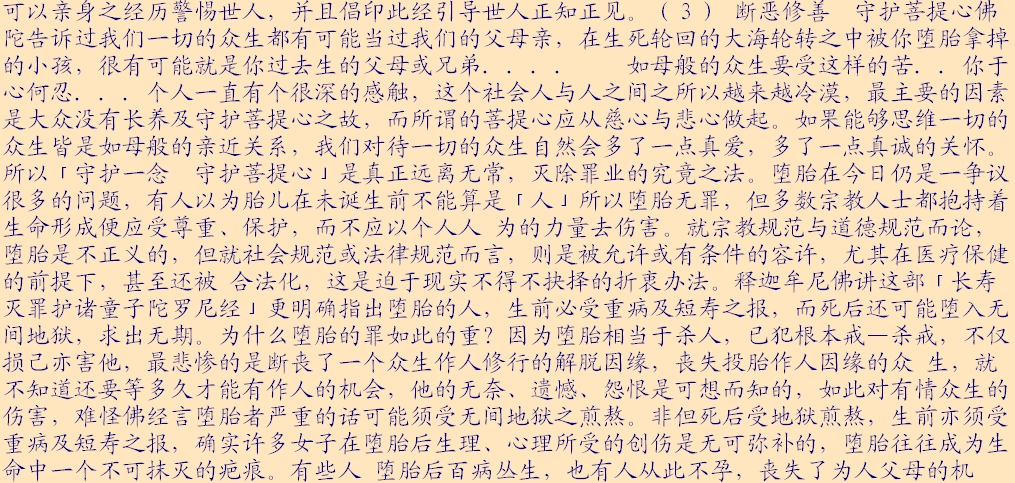 可以亲身之经历警惕世人，并且倡印此经引导世人正知正见。（3） 断恶修善　守护菩提心佛
陀告诉过我们一切的众生都有可能当过我们的父母亲，在生死轮回的大海轮转之中被你堕胎拿掉
的小孩，很有可能就是你过去生的父母或兄弟．．．．　　如母般的众生要受这样的苦．．你于
心何忍．．．个人一直有个很深的感触，这个社会人与人之间之所以越来越冷漠，最主要的因素
是大众没有长养及守护菩提心之故，而所谓的菩提心应从慈心与悲心做起。如果能够思维一切的
众生皆是如母般的亲近关系，我们对待一切的众生自然会多了一点真爱，多了一点真诚的关怀。
所以「守护一念　守护菩提心」是真正远离无常，灭除罪业的究竟之法。堕胎在今日仍是一争议
很多的问题，有人以为胎儿在未诞生前不能算是「人」所以堕胎无罪，但多数宗教人士都抱持着
生命形成便应受尊重、保护，而不应以个人人 为的力量去伤害。就宗教规范与道德规范而论，
堕胎是不正义的，但就社会规范或法律规范而言，则是被允许或有条件的容许，尤其在医疗保健
的前提下，甚至还被 合法化，这是迫于现实不得不抉择的折衷办法。释迦牟尼佛讲这部「长寿
灭罪护诸童子陀罗尼经」更明确指出堕胎的人，生前必受重病及短寿之报，而死后还可能堕入无
间地狱，求出无期。为什么堕胎的罪如此的重？因为堕胎相当于杀人，已犯根本戒—杀戒，不仅
损己亦害他，最悲惨的是断丧了一个众生作人修行的解脱因缘，丧失投胎作人因缘的众 生，就
不知道还要等多久才能有作人的机会，他的无奈、遗憾、怨恨是可想而知的，如此对有情众生的
伤害，难怪佛经言堕胎者严重的话可能须受无间地狱之煎熬。非但死后受地狱煎熬，生前亦须受
重病及短寿之报，确实许多女子在堕胎后生理、心理所受的创伤是无可弥补的，堕胎往往成为生
命中一个不可抹灭的疤痕。有些人 堕胎后百病丛生，也有人从此不孕，丧失了为人父母的机